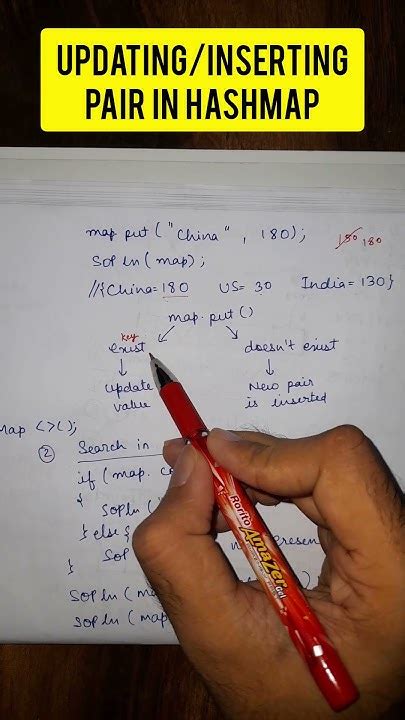 UPDATING/INSERTING
PAIR IN HASHMAP
map put ("China", 180);
150 180
Sop ln (map);
//{China=180 US=30 India=130}
map.put()
key
exist doesn't exist
update New pair
value is inserted
Map <>();
② Search in
if (map. co
{
Sopln ("
} else {
Sop
}
Sop ln (ma )
Sop ln (map
Rorito
Amazer
Gel